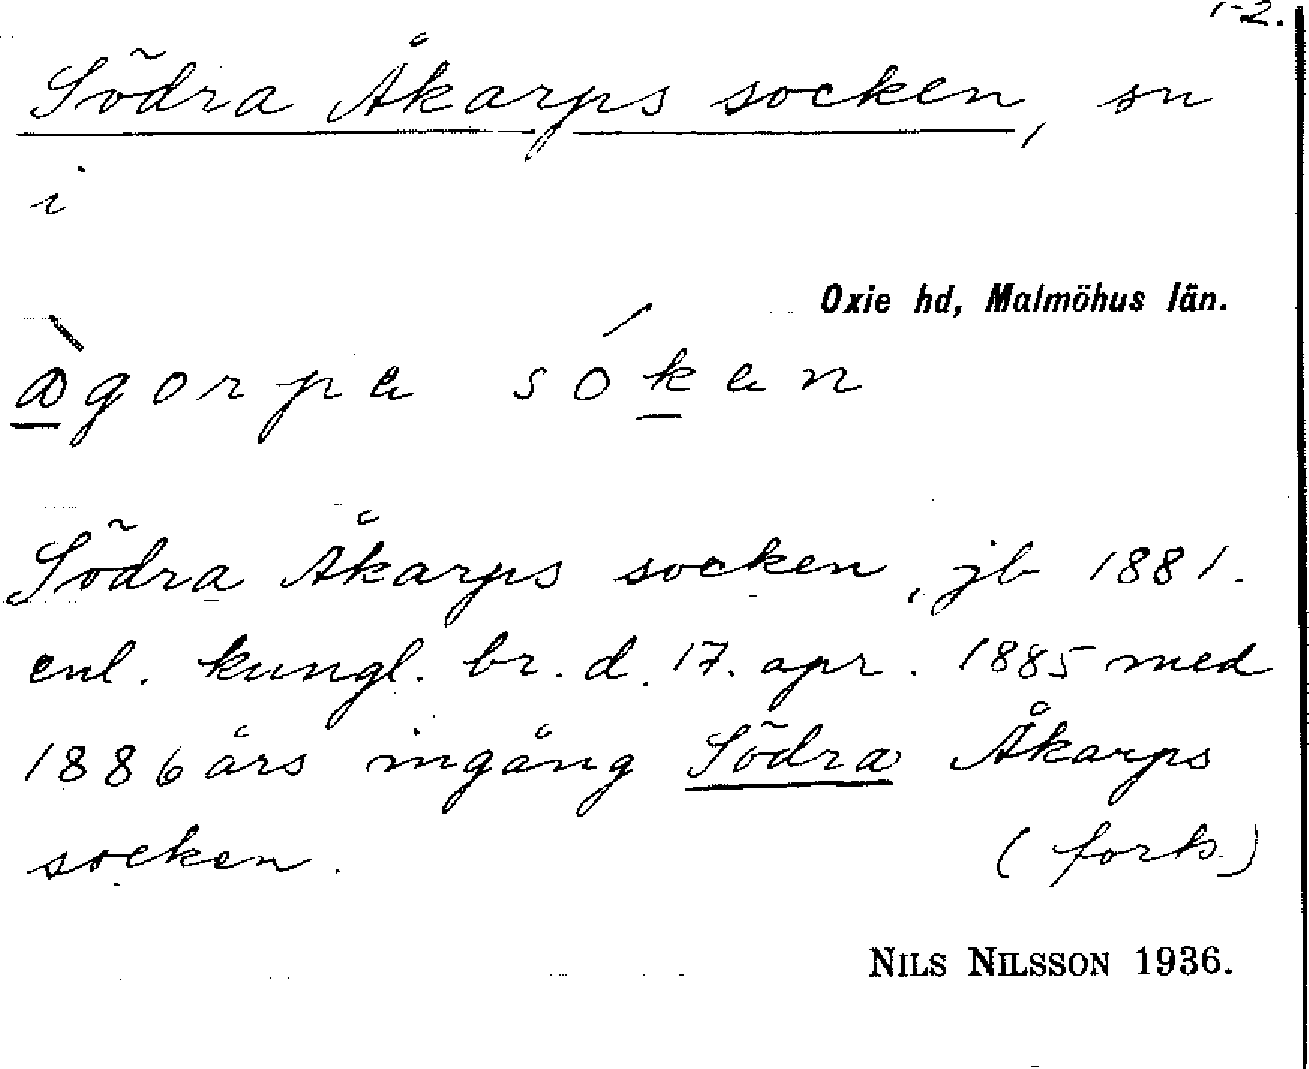 1-2.
Södra Åkarps socken, sn
i
Oxie hd, Malmöhus län.
ågorpa sókan
Södra Åkarps socken, jb 1881.
enl. kungl. br. d. 17. apr. 1885 med
1886 års ingång Södra Åkarps
socken. (forts.)
NILS NILSSON 1936.